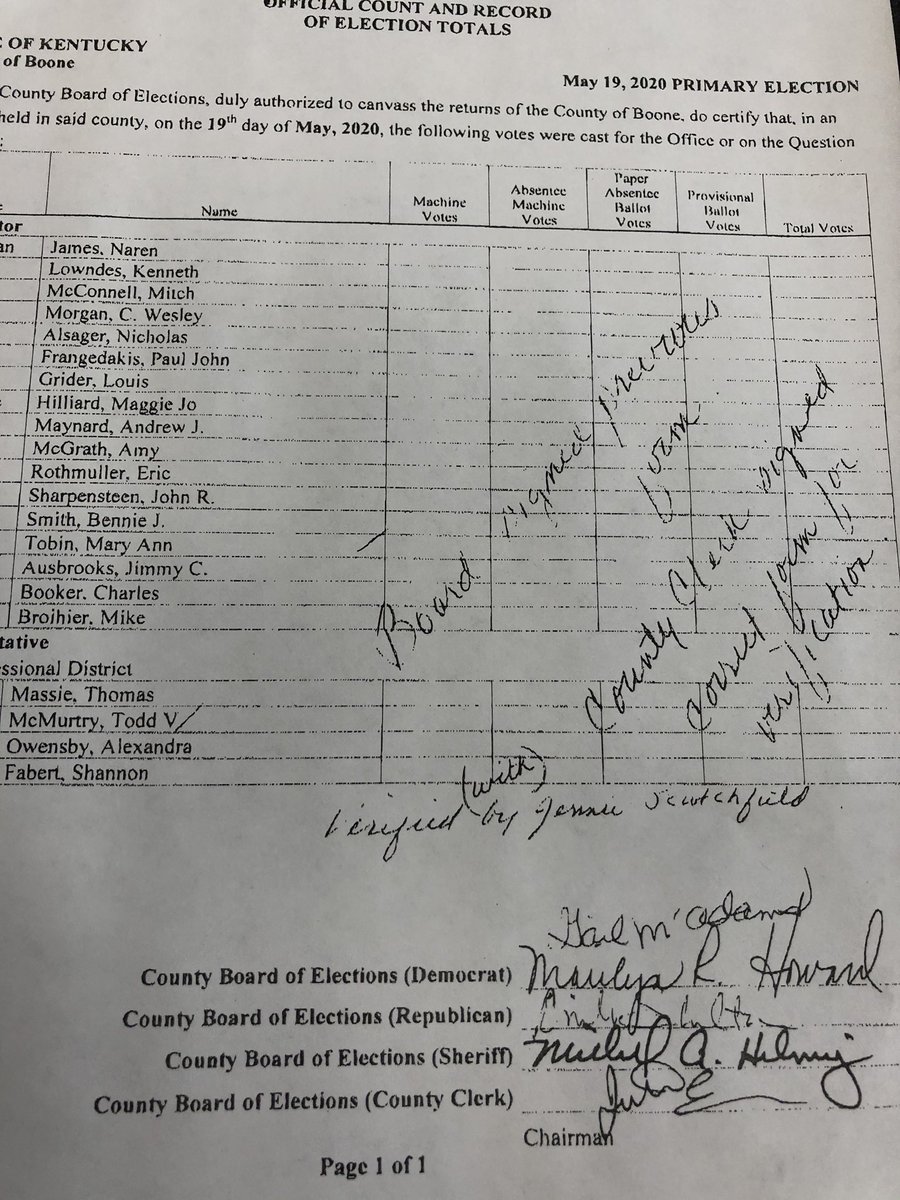 OFFICIAL COUNT AND RECORD
OF ELECTION TOTALS
OF KENTUCKY
of Boone
May 19, 2020 PRIMARY ELECTION
County Board of Elections, duly authorized to canvass the returns of the County of Boone, do certify that, in an
held in said county, on the 19th day of May, 2020, the following votes were cast for the Office or on the Question
Name
Machine Votes
Absentee Machine Votes
Paper Absentee Ballot Votes
Provisional Ballot Votes
Total Votes
tor
an James, Naren
Lowndes, Kenneth
McConnell, Mitch
Morgan, C. Wesley
Alsager, Nicholas
Frangedakis, Paul John
Grider, Louis
Hilliard, Maggie Jo
Maynard, Andrew J.
McGrath, Amy
Rothmuller, Eric
Sharpensteen, John R.
Smith, Bennie J.
Tobin, Mary Ann
Ausbrooks, Jimmy C.
Booker, Charles
Broihier, Mike
tative
ssional District
Massie, Thomas
McMurtry, Todd V
Owensby, Alexandra
Fabert, Shannon
Board signed previous
form
County Clerk signed
correct form for
verification
Verified (with) by Jennie Scutchfield
Gail McAdams
County Board of Elections (Democrat) Marilyn R. Howard
County Board of Elections (Republican)
County Board of Elections (Sheriff) Michael A. Helmig
County Board of Elections (County Clerk)
Chairman
Page 1 of 1